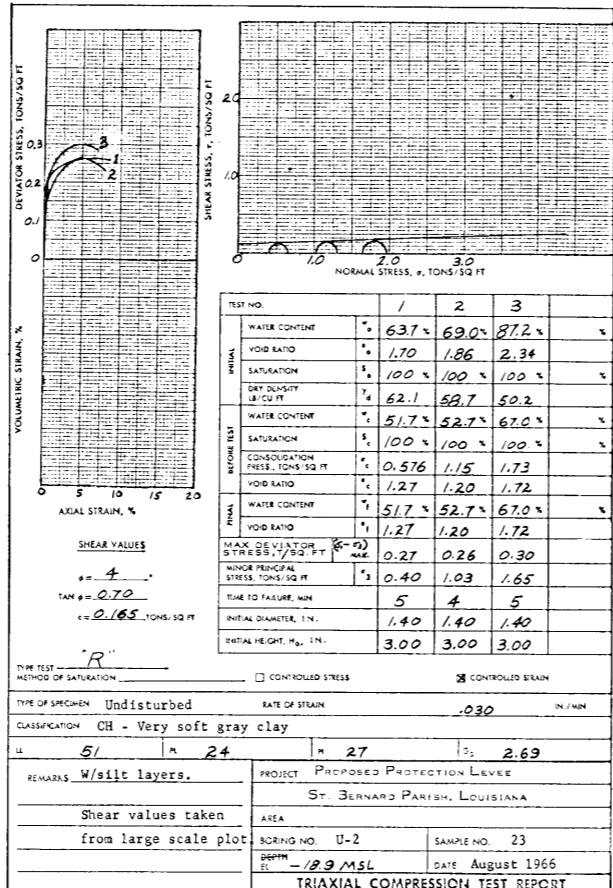 DEVIATOR STRESS, TONS/SQ FT
0.3
0.2
0.1
0
3
1
2
VOLUMETRIC STRAIN, %
0 5 10 15 20
AXIAL STRAIN, %
SHEAR STRESS, τ, TONS/SQ FT
2.0
1.0
0 1.0 2.0 3.0
NORMAL STRESS, σ, TONS/SQ FT
SHEAR VALUES
φ = 4 °
TAN φ = 0.70
c = 0.165 TONS/SQ FT
TEST NO. 1 2 3
INITIAL
WATER CONTENT 63.7 % 69.0 % 87.2 % %
VOID RATIO 1.70 1.86 2.34
SATURATION 100 % 100 % 100 % %
DRY DENSITY LB/CU FT 62.1 58.7 50.2
BEFORE TEST
WATER CONTENT 51.7 % 52.7 % 67.0 % %
SATURATION 100 % 100 % 100 % %
CONSOLIDATION PRESS., TONS/SQ FT 0.576 1.15 1.73
VOID RATIO 1.27 1.20 1.72
FINAL
WATER CONTENT 51.7 % 52.7 % 67.0 % %
VOID RATIO 1.27 1.20 1.72
MAX DEVIATOR STRESS, T/SQ.FT MAX. 0.27 0.26 0.30
MINOR PRINCIPAL STRESS, TONS/SQ FT 0.40 1.03 1.65
TIME TO FAILURE, MIN 5 4 5
INITIAL DIAMETER, IN. 1.40 1.40 1.40
INITIAL HEIGHT, H₀, IN. 3.00 3.00 3.00
TYPE TEST "R"
METHOD OF SATURATION
CONTROLLED STRESS
CONTROLLED STRAIN
TYPE OF SPECIMEN Undisturbed RATE OF STRAIN .030 IN./MIN
CLASSIFICATION CH - Very soft gray clay
LL 51 PL 24 PI 27 2.69
REMARKS W/silt layers.
Shear values taken
from large scale plot
PROJECT PROPOSED PROTECTION LEVEE
ST. BERNARD PARISH, LOUISIANA
AREA
BORING NO. U-2 SAMPLE NO. 23
DEPTH
EL -18.9 MSL DATE August 1966
TRIAXIAL COMPRESSION TEST REPORT